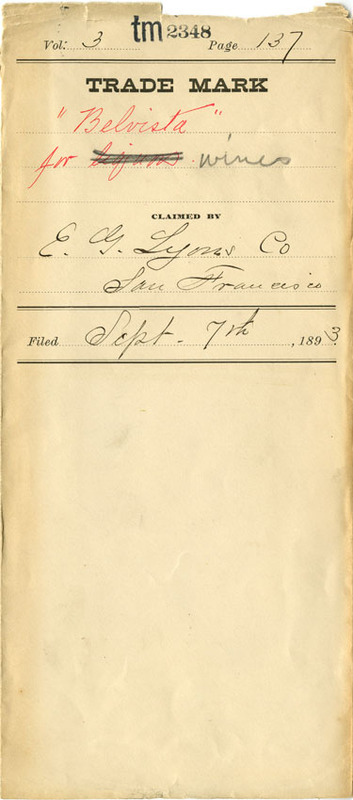 tm 2348
Vol: 3 Page 137
TRADE MARK
"Belvista"
for liquors. wines
CLAIMED BY
E. G. Lyons Co
San Francisco
Filed Sept. 7th, 1893